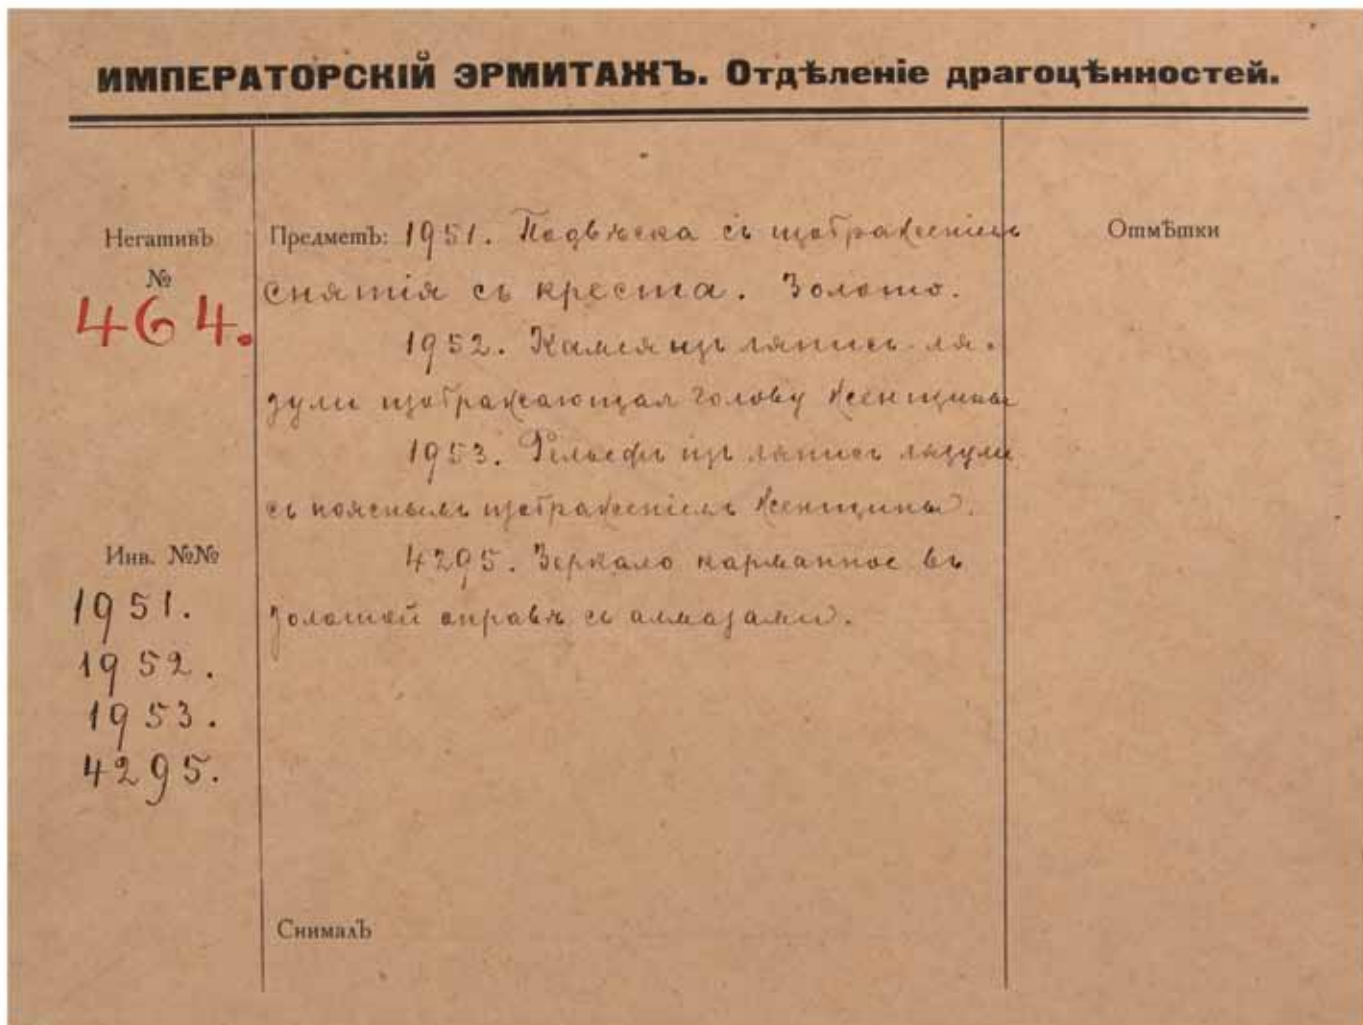 ИМПЕРАТОРСКІЙ ЭРМИТАЖЪ. Отдѣленіе драгоцѣнностей.
Негативъ
№
464.
Инв. №№
1951.
1952.
1953.
4295.
Предметъ: 1951. Подвѣска съ изображеніемъ
снятія съ креста. Золото.
1952. Камея изъ ляписъ-ля-
зули изображающая голову женщины
1953. Рельефъ изъ ляписъ лязули
съ пояснымъ изображеніемъ женщины.
4295. Зеркало карманное въ
золотой оправѣ съ алмазами.
Снималъ
Отмѣтки